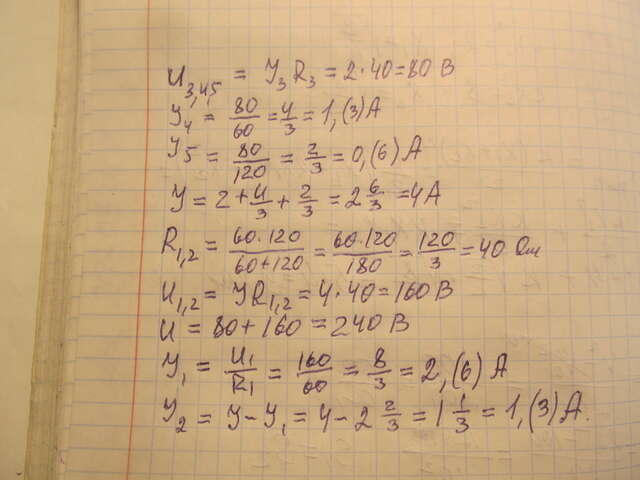 U₃,₄,₅ = У₃ R₃ = 2·40 = 80 В
У₄ = 80/60 = 4/3 = 1,(3) А
У₅ = 80/120 = 2/3 = 0,(6) А
У = 2 + 4/3 + 2/3 = 2 6/3 = 4 А
R₁,₂ = 60·120/60+120 = 60·120/180 = 120/3 = 40 Ом
U₁,₂ = УR₁,₂ = 4·40 = 160 В
U = 80 + 160 = 240 В
У₁ = U₁/R₁ = 160/60 = 8/3 = 2,(6) А
У₂ = У − У₁ = 4 − 2 2/3 = 1 1/3 = 1,(3) А.